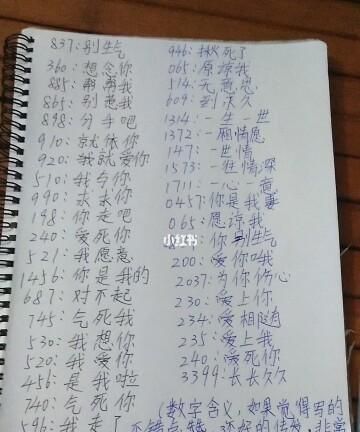 837:别生气
360:想念你
885:帮帮我
865:别惹我
898:分手吧
910:就依你
920:我就爱你
510:我与你
990:求求你
198:你走吧
240:爱死你
521:我愿意
1456:你是我的
687:对不起
745:气死我
530:我想你
520:我爱你
456:是我啦
740:气死你
596:我走了
946:揪死了
065:原谅我
514:无意思
609:到永久
1314:一生一世
1372:一厢情愿
147:一世情
1573:一往情深
1711:一心一意
0457:你是我妻
065:愿谅我
你别生气
200:爱你哦
2037:为你伤心
230:爱上你
234:爱相随
235:爱上我
240:爱死你
3399:长长久久
(数字含义,如果觉得写的
不错点赞
小红书